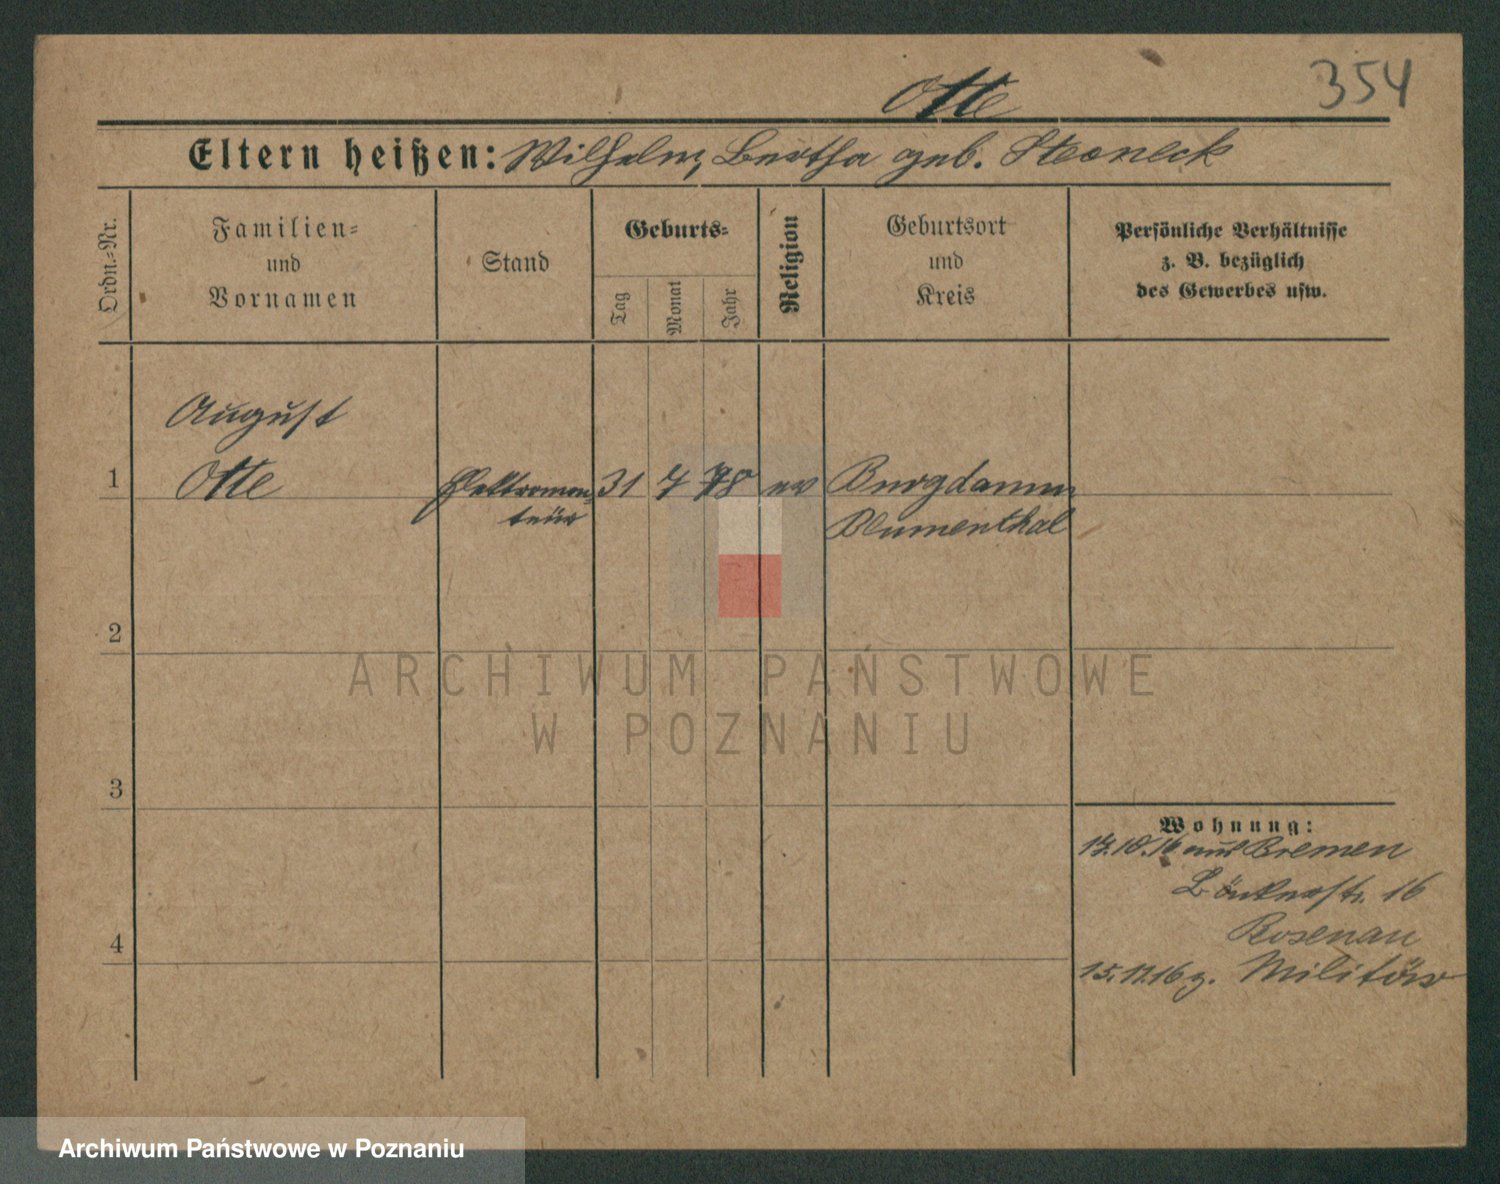 354
Otte
Eltern heißen: Wilhelm, Bertha geb.
Ordn.-Nr.
Familien-
und
Vornamen
Stand
Geburts-
Tag
Monat
Jahr
Religion
Geburtsort
und
Kreis
Persönliche Verhältnisse
z. B. bezüglich
des Gewerbes usw.
August
1
Otte
Elektromon-
teur
31
7
78
ev
Burgdamm
Blumenthal
2
ARCHIWUM PAŃSTWOWE
W POZNANIU
3
Wohnung:
aus Bremen
16
Rosenau
4
15.11.16 z. Militär
Archiwum Państwowe w Poznaniu